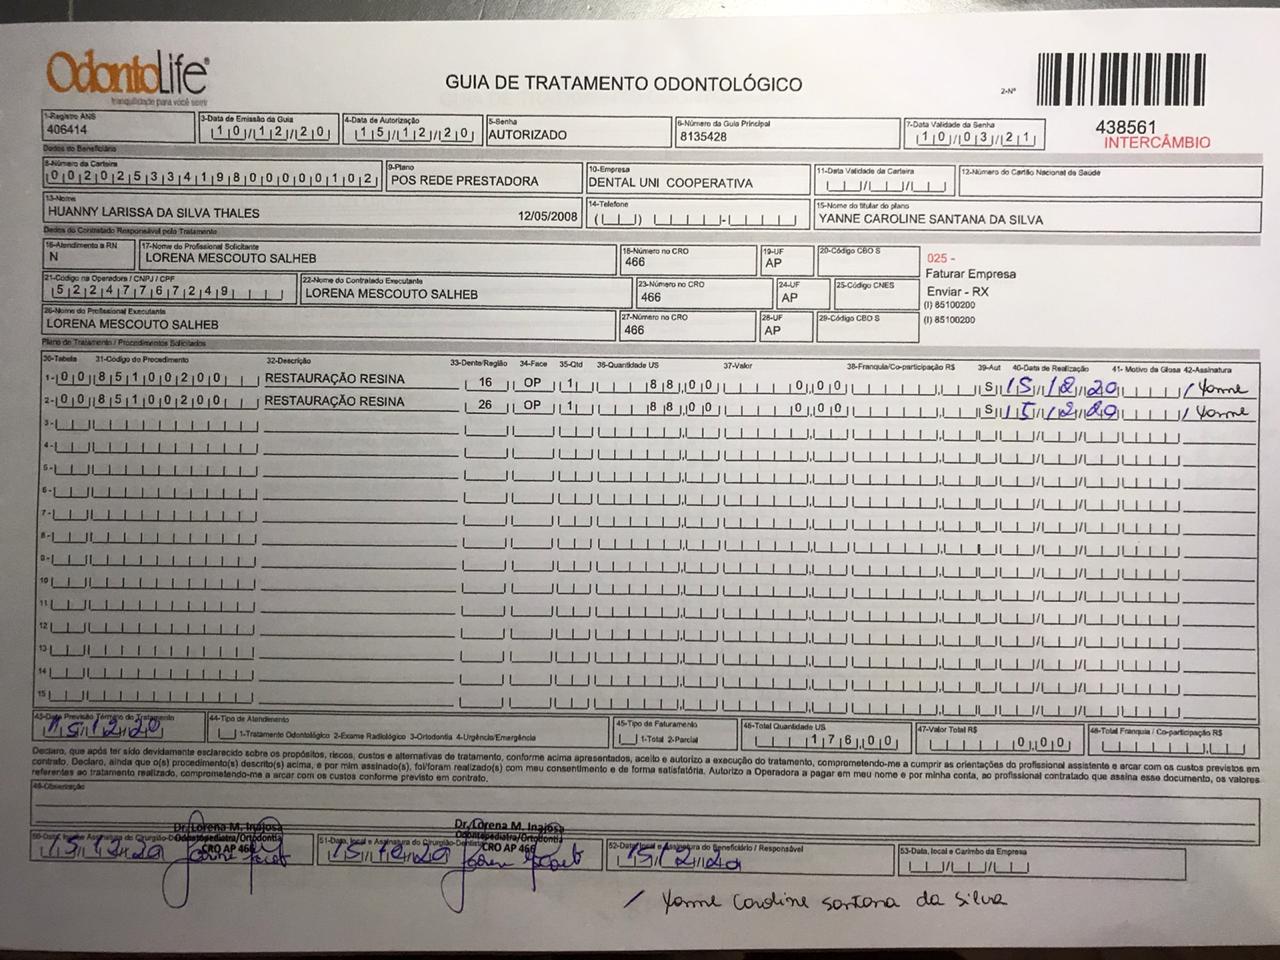 OdontoLife
tranquilidade para você sorrir
GUIA DE TRATAMENTO ODONTOLÓGICO
2-Nº
438561
INTERCÂMBIO
1-Registro ANS 3-Data de Emissão da Guia 4-Data de Autorização 5-Senha 6-Número da Guia Principal 7-Data Validade da Senha
406414 10/12/20 15/12/20 AUTORIZADO 8135428 10/03/21
Dados do Beneficiário
8-Número da Carteira 9-Plano 10-Empresa 11-Data Validade da Carteira 12-Número do Cartão Nacional de Saúde
00202533419800000102 POS REDE PRESTADORA DENTAL UNI COOPERATIVA
13-Nome 14-Telefone 15-Nome do titular do plano
HUANNY LARISSA DA SILVA THALES 12/05/2008 YANNE CAROLINE SANTANA DA SILVA
Dados do Contratado Responsável pelo Tratamento
16-Atendimento a RN 17-Nome do Profissional Solicitante 18-Número no CRO 19-UF 20-Código CBO S
N LORENA MESCOUTO SALHEB 466 AP
025 -
Faturar Empresa
Enviar - RX
(I) 85100200
(I) 85100200
21-Código na Operadora / CNPJ / CPF 22-Nome do Contratado Executante 23-Número no CRO 24-UF 25-Código CNES
52247767249 LORENA MESCOUTO SALHEB 466 AP
26-Nome do Profissional Executante 27-Número no CRO 28-UF 29-Código CBO S
LORENA MESCOUTO SALHEB 466 AP
Plano de Tratamento / Procedimentos Solicitados
30-Tabela 31-Código do Procedimento 32-Descrição 33-Dente/Região 34-Face 35-Qtd 36-Quantidade US 37-Valor 38-Franquia/Co-participação R$ 39-Aut 40-Data de Realização 41- Motivo da Glosa 42-Assinatura
1- 00 85100200 RESTAURAÇÃO RESINA 16 OP 1 88,00 0,00 S 15/12/20 / Yanne
2- 00 85100200 RESTAURAÇÃO RESINA 26 OP 1 88,00 0,00 S 15/12/20 / Yanne
3-
4-
5-
6-
7-
8-
9-
10
11
12
13
14
15
43-Data Previsão Término do Tratamento 44-Tipo de Atendimento 45-Tipo de Faturamento 46-Total Quantidade US 47-Valor Total R$ 48-Total Franquia / Co-participação R$
15/12/20 1-Tratamento Odontológico 2-Exame Radiológico 3-Ortodontia 4-Urgência/Emergência 1-Total 2-Parcial 176,00 0,00
Declaro, que após ter sido devidamente esclarecido sobre os propósitos, riscos, custos e alternativas de tratamento, conforme acima apresentados, aceito e autorizo a execução do tratamento, comprometendo-me a cumprir as orientações do profissional assistente e arcar com os custos previstos em
contrato. Declaro, ainda que o(s) procedimento(s) descrito(s) acima, e por mim assinado(s), foi/foram realizado(s) com meu consentimento e de forma satisfatória. Autorizo a Operadora a pagar em meu nome e por minha conta, ao profissional contratado que assina esse documento, os valores
referentes ao tratamento realizado, comprometendo-me a arcar com os custos conforme previsto em contrato.
49-Observação
Dr. Lorena M. Inajosa Dr. Lorena M. Inajosa
Odontopediatra/Ortodontia Odontopediatra/Ortodontia
CRO AP 466 CRO AP 466
50-Data, local e Assinatura do Cirurgião-Dentista 51-Data, local e Assinatura do Cirurgião-Dentista 52-Data, local e Assinatura do Beneficiário / Responsável 53-Data, local e Carimbo da Empresa
15/12/20 15/12/20 15/12/20
/ Yanne Caroline Santana da Silva